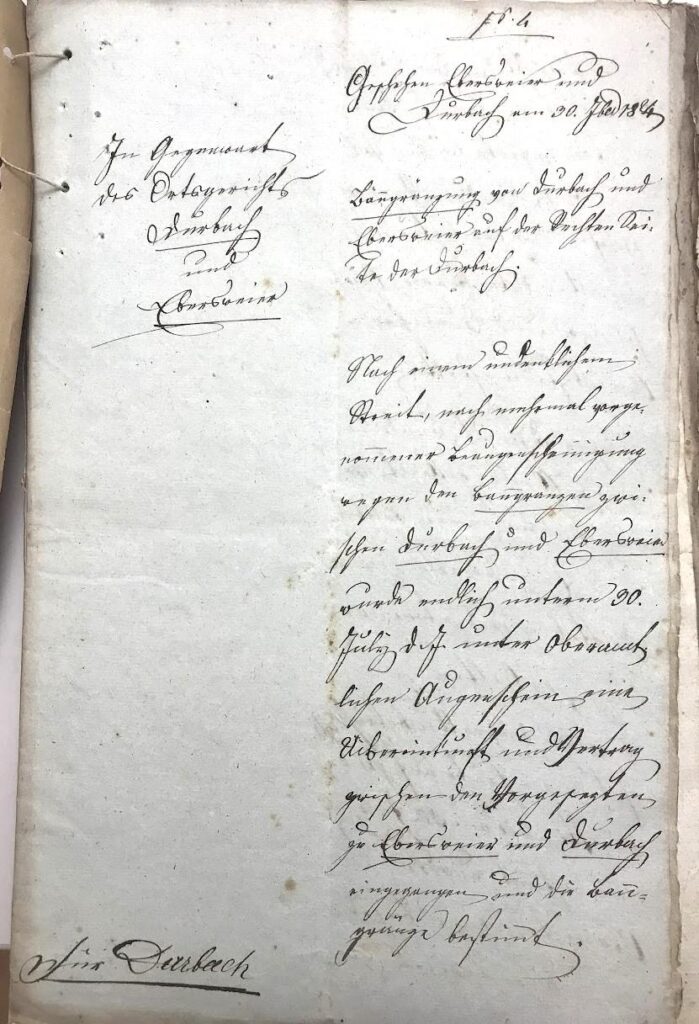 Geschehen Ebersweier und
Durbach am 30. 7ber 1824
In Gegenwart
des Ortsgerichts
Durbach
und
Ebersweier
Banngränzung von Durbach und
Ebersweier auf der Rechten Sei-
te der Durbach.
Nach einem undenklichem
Streit, nach mehrmal vorge-
nommener Beaugenscheinigung
wegen den Banngränzen zwi-
schen Durbach und Ebersweier
wurde endlich unterm 30.
July d. J. unter Oberamt-
lichen Augenschein eine
Uibereinkunft und Vertrag
zwischen den Vorgesezten
zu Ebersweier und Durbach
eingegangen und die Bann-
gränze bestimt.
Für Durbach